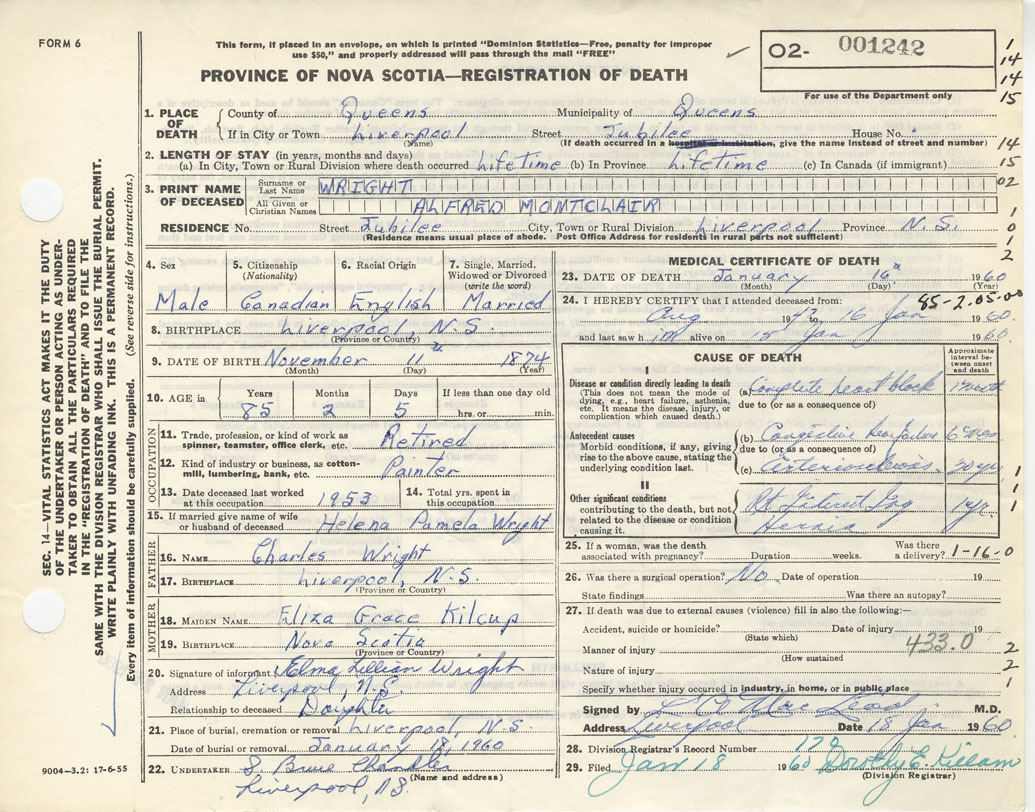 FORM 6
This form, if placed in an envelope, on which is printed "Dominion Statistics—Free, penalty for improper
use $50," and properly addressed will pass through the mail "FREE"
PROVINCE OF NOVA SCOTIA—REGISTRATION OF DEATH
O2- 001242
For use of the Department only
1
14
14
15
14
15
02
1
0
1
2
SEC. 14—VITAL STATISTICS ACT MAKES IT THE DUTY
OF THE UNDERTAKER OR PERSON ACTING AS UNDER-
TAKER TO OBTAIN ALL THE PARTICULARS REQUIRED
IN THE "REGISTRATION OF DEATH" AND TO FILE THE
SAME WITH THE DIVISION REGISTRAR WHO SHALL ISSUE THE BURIAL PERMIT.
WRITE PLAINLY WITH UNFADING INK. THIS IS A PERMANENT RECORD.
Every item of information should be carefully supplied. (See reverse side for instructions.)
1. PLACE OF DEATH County of Queens Municipality of Queens
If in City or Town Liverpool Street Jubilee House No.
(Name) (If death occurred in a hospital or institution, give the name instead of street and number)
2. LENGTH OF STAY (in years, months and days)
(a) In City, Town or Rural Division where death occurred Lifetime (b) In Province Lifetime (c) In Canada (if immigrant)
3. PRINT NAME OF DECEASED Surname or Last Name WRIGHT
All Given or Christian Names ALFRED MONTCLAIR
RESIDENCE No. Street Jubilee City, Town or Rural Division Liverpool Province N.S.
(Residence means usual place of abode. Post Office Address for residents in rural parts not sufficient)
4. Sex Male
5. Citizenship (Nationality) Canadian
6. Racial Origin English
7. Single, Married, Widowed or Divorced (write the word) Married
8. BIRTHPLACE Liverpool, N.S.
(Province or Country)
9. DATE OF BIRTH November 11th 1874
(Month) (Day) (Year)
10. AGE in Years 85 Months 2 Days 5 If less than one day old hrs. or min.
OCCUPATION
11. Trade, profession, or kind of work as spinner, teamster, office clerk, etc. Retired
12. Kind of industry or business, as cotton-mill, lumbering, bank, etc. Painter
13. Date deceased last worked at this occupation 1953
14. Total yrs. spent in this occupation
15. If married give name of wife or husband of deceased Helena Pamela Wright
FATHER
16. NAME Charles Wright
17. BIRTHPLACE Liverpool, N.S.
(Province or Country)
MOTHER
18. MAIDEN NAME Eliza Grace Kilcup
19. BIRTHPLACE Nova Scotia
(Province or Country)
20. Signature of informant Elma Lillian Wright
Address Liverpool, N.S.
Relationship to deceased Daughter
21. Place of burial, cremation or removal Liverpool, N.S
Date of burial or removal January 18, 1960
22. UNDERTAKER S Bruce Chandler
(Name and address)
Liverpool, NS.
9004-3.2: 17-6-55
MEDICAL CERTIFICATE OF DEATH
23. DATE OF DEATH January 16th 1960
(Month) (Day) (Year)
24. I HEREBY CERTIFY that I attended deceased from: 85-2.05-00
Aug 1947 to 16 Jan 1960
and last saw him alive on 15 Jan 1960
CAUSE OF DEATH
Approximate interval between onset and death
I
Disease or condition directly leading to death
(This does not mean the mode of dying, e.g., heart failure, asthenia, etc. It means the disease, injury, or complication which caused death.)
(a) Complete heart block 1 month
due to (or as a consequence of)
Antecedent causes
Morbid conditions, if any, giving rise to the above cause, stating the underlying condition last.
(b) Congestive heart failure 6 mos
due to (or as a consequence of)
(c) 20 yr.
II
Other significant conditions
contributing to the death, but not related to the disease or condition causing it.
Rt Ing Hernia 1 yr.
1
1
1
25. If a woman, was the death associated with pregnancy? Duration weeks. Was there a delivery? 1-16-0
26. Was there a surgical operation? No Date of operation 19
State findings Was there an autopsy?
27. If death was due to external causes (violence) fill in also the following:—
Accident, suicide or homicide? Date of injury 19
(State which) 433.0
Manner of injury 2
(How sustained
Nature of injury 1
Specify whether injury occurred in industry, in home, or in public place
Signed by M.D.
Address Liverpool Date 18 Jan 1960
28. Division Registrar's Record Number
29. Filed Jan 18 1960 Dorothy E. Killam
(Division Registrar)